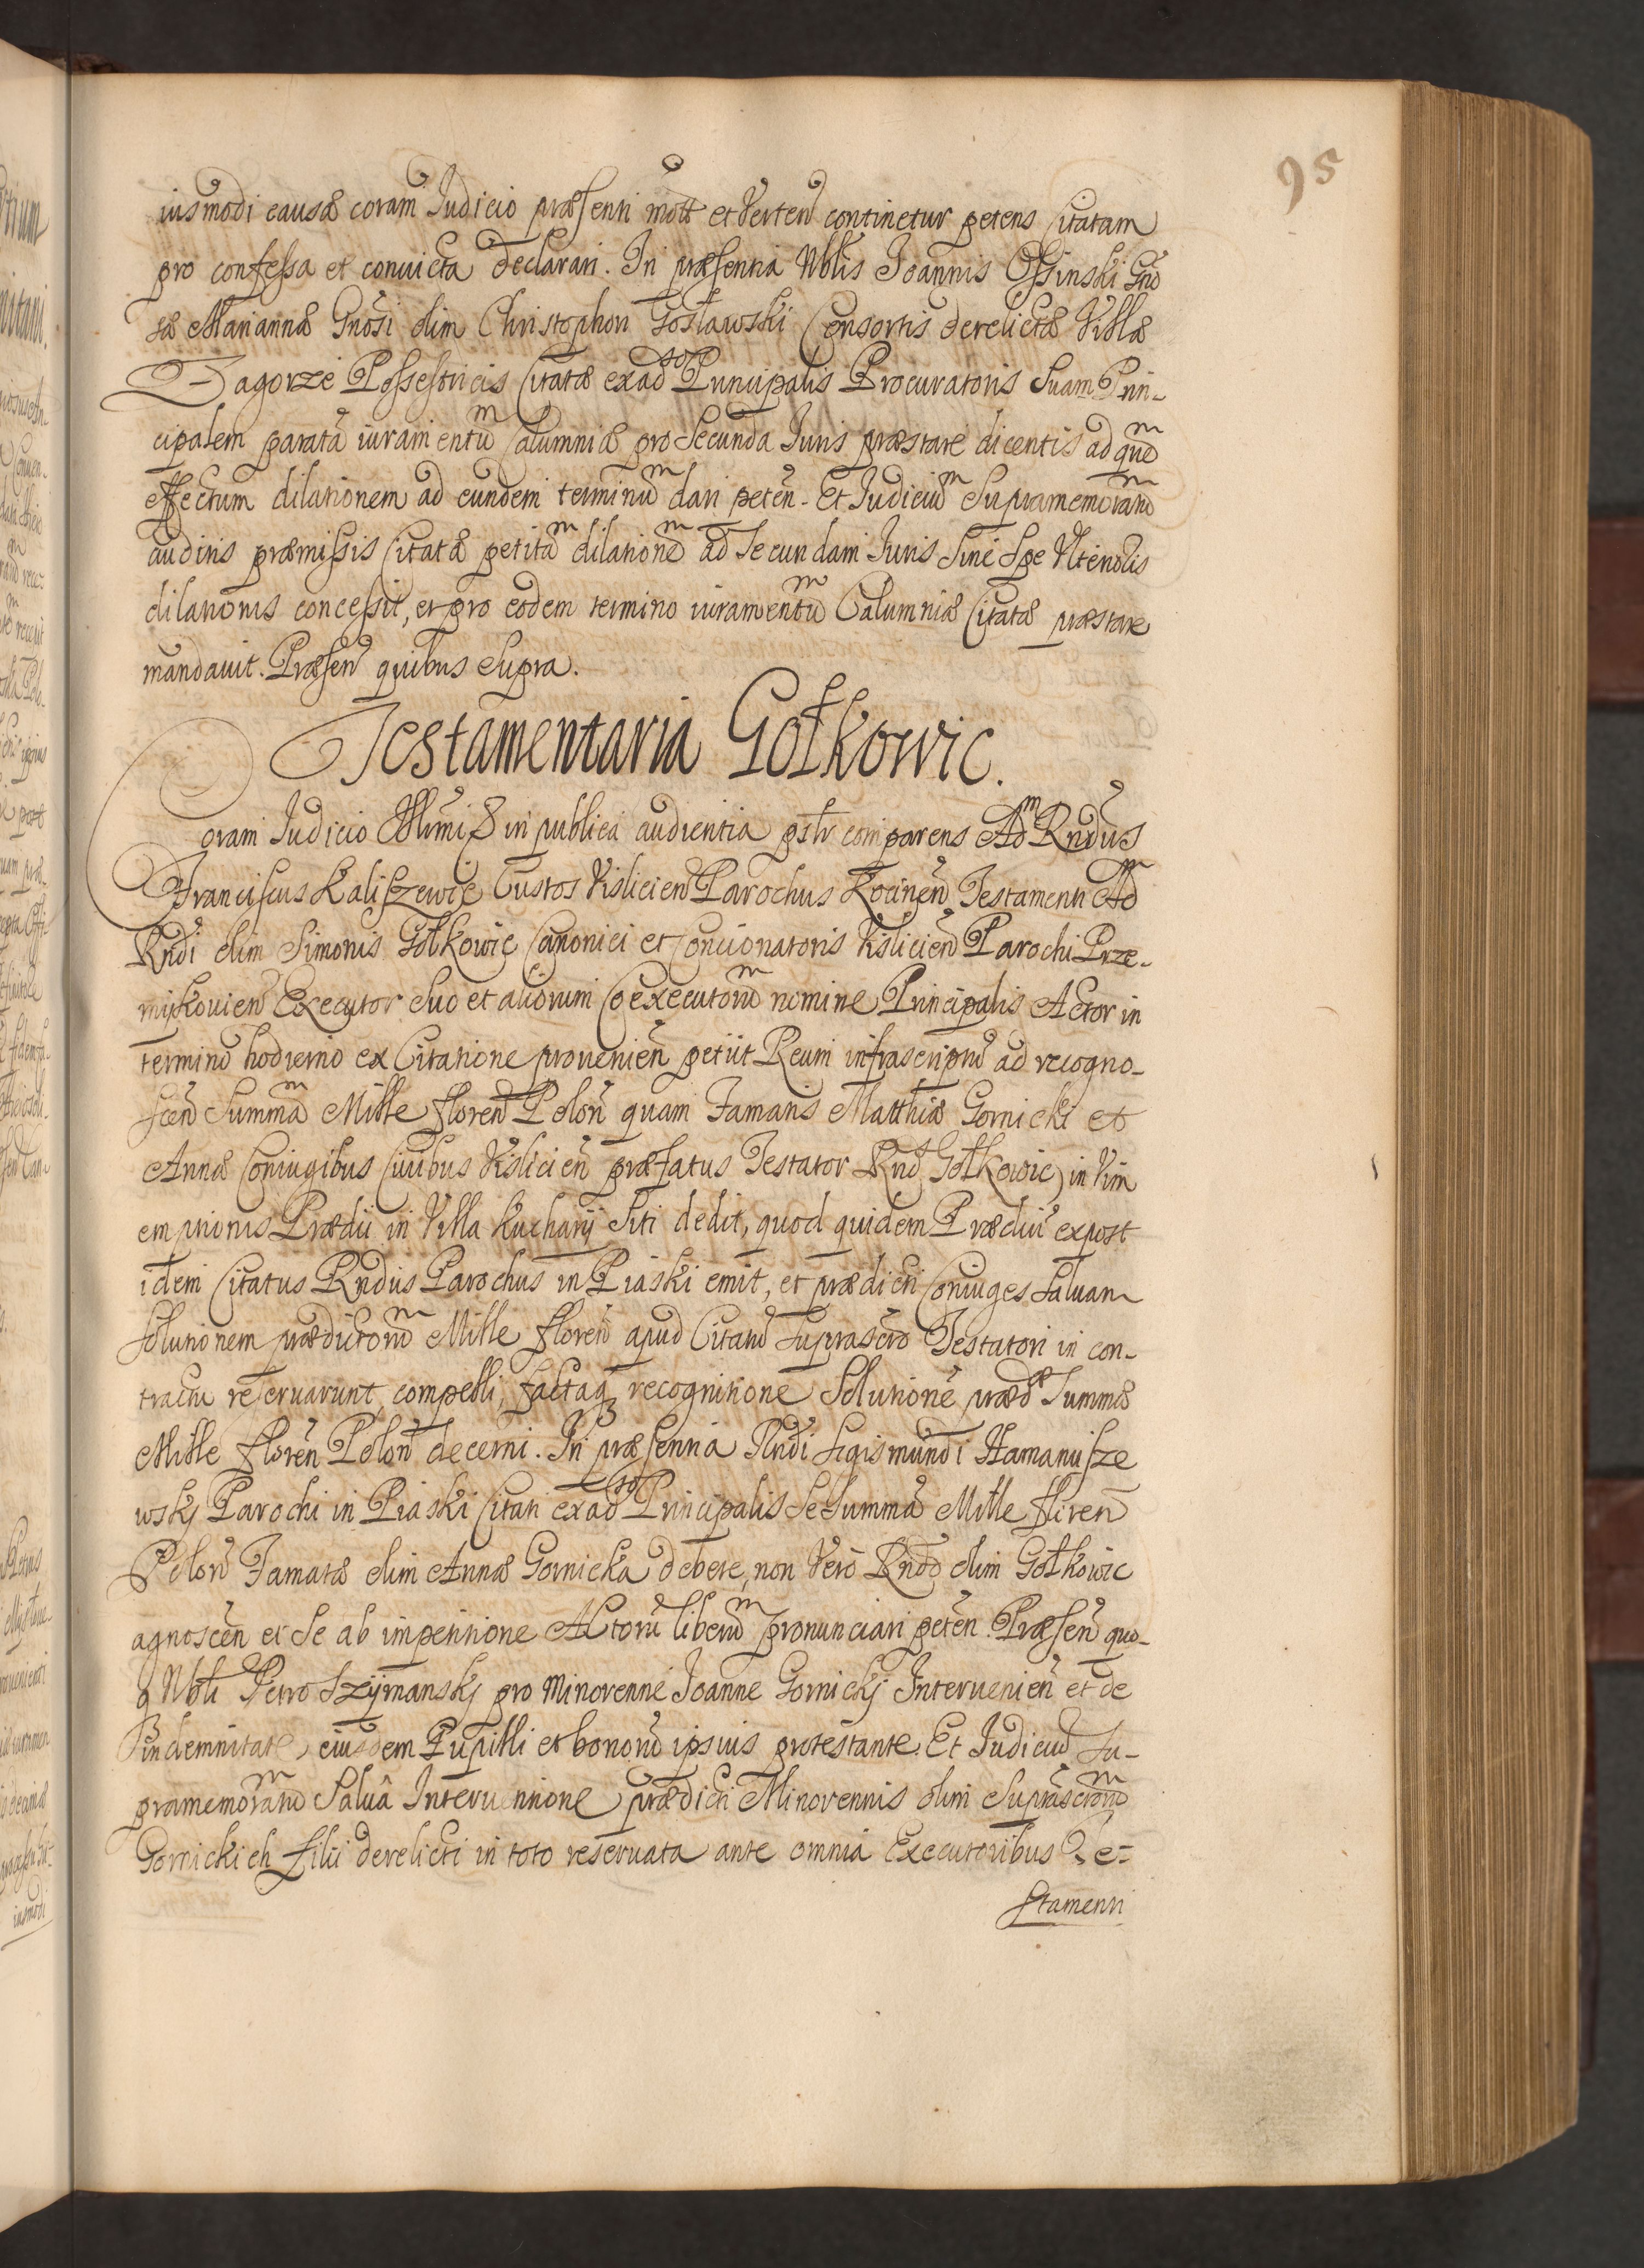 95
iusmodi causæ coram Judicio præsenti mott et Verten continetur petens Citatam
pro confessa et convicta declarari. In præsentia Nblis Joannis Ossinski Gno
sæ Mariannæ Gnosi olim Christophori Gosławski Consortis derelictæ Villæ
Zagorze Possestricis Citatæ ex adso Principalis Procuratoris Suam Prin-
cipalem paratã iuramentũm Calumniæ pro Secunda Juris præstare dicentis ad quem
effectum dilationem ad eundem terminũm dari petẽn. Et Judiciũm Supramemoratum
auditis præmissis Citatæ petitãm dilationẽm ad Secundam Juris Sine Spe Vlterioris
dilationis concessit, et pro eodem termino iuramentũm Calumniæ Citatæ præstare
mandavit. Præsen quibus Supra.
Testamentaria Gołkowic.
Coram Judicio Illmi S in publica audientia pstr comparens Adm Rndus
Franciscus Kaliszewic Custos Vislicien Parochus Kocinẽn Testamenti Adm
Rndi olim Simonis Gołkowic Canonici et Concionatoris Vislicien Parochi Prze-
mÿkovien Executor Suo et aliorum Coexecutorum nomine Principalis Actor in
termino hodierno ex Citatione provenien petiit Reum infrascriptũ ad recogno-
scen Summãm Mille floren Polon quam Famatis Matthiæ Gornicki et
Annæ Coniugibus Civibus Vislicien præfatus Testator Rnd Gołkowic, in Vim
emptionis Prædii in Villa Kucharÿ Siti dedit, quod quidem Prædiũ expost
idem Citatus Rndus Parochus in Piaski emit, et prædicti Coniuges Salvam
Solutionem prædictorum Mille floren apud Citatũ Suprascro Testatori in con-
tractu reservarunt, compelli, factaq recognitione Solutionẽ prædæ Summæ
Mille floren Polon decerni. In præsentia Rndi Sigismundi Hamanisze
wskj Parochi in Piaski Citati ex adso Principalis Se Summã Mille floren
Polon Famatæ olim Annæ Gornicka debere, non Vero Rndo olim Gołkowic
agnoscẽn et Se ab impetitione Actorũ liberum pronunciari petẽn. Præsen quo-
q Nbli Petro Szÿmanskj pro Minorenne Joanne Gornickj Intervenien et de
indemnitate eiusdem Pupilli et bonorũ ipsius protestante. Et Judiciũ Su-
pramemoratũm Salvâ Interventione prædicti Minorennis olim Suprascrorum
Gornickich filii derelicti in toto reservata ante omnia Executoribus Te-
stamenti